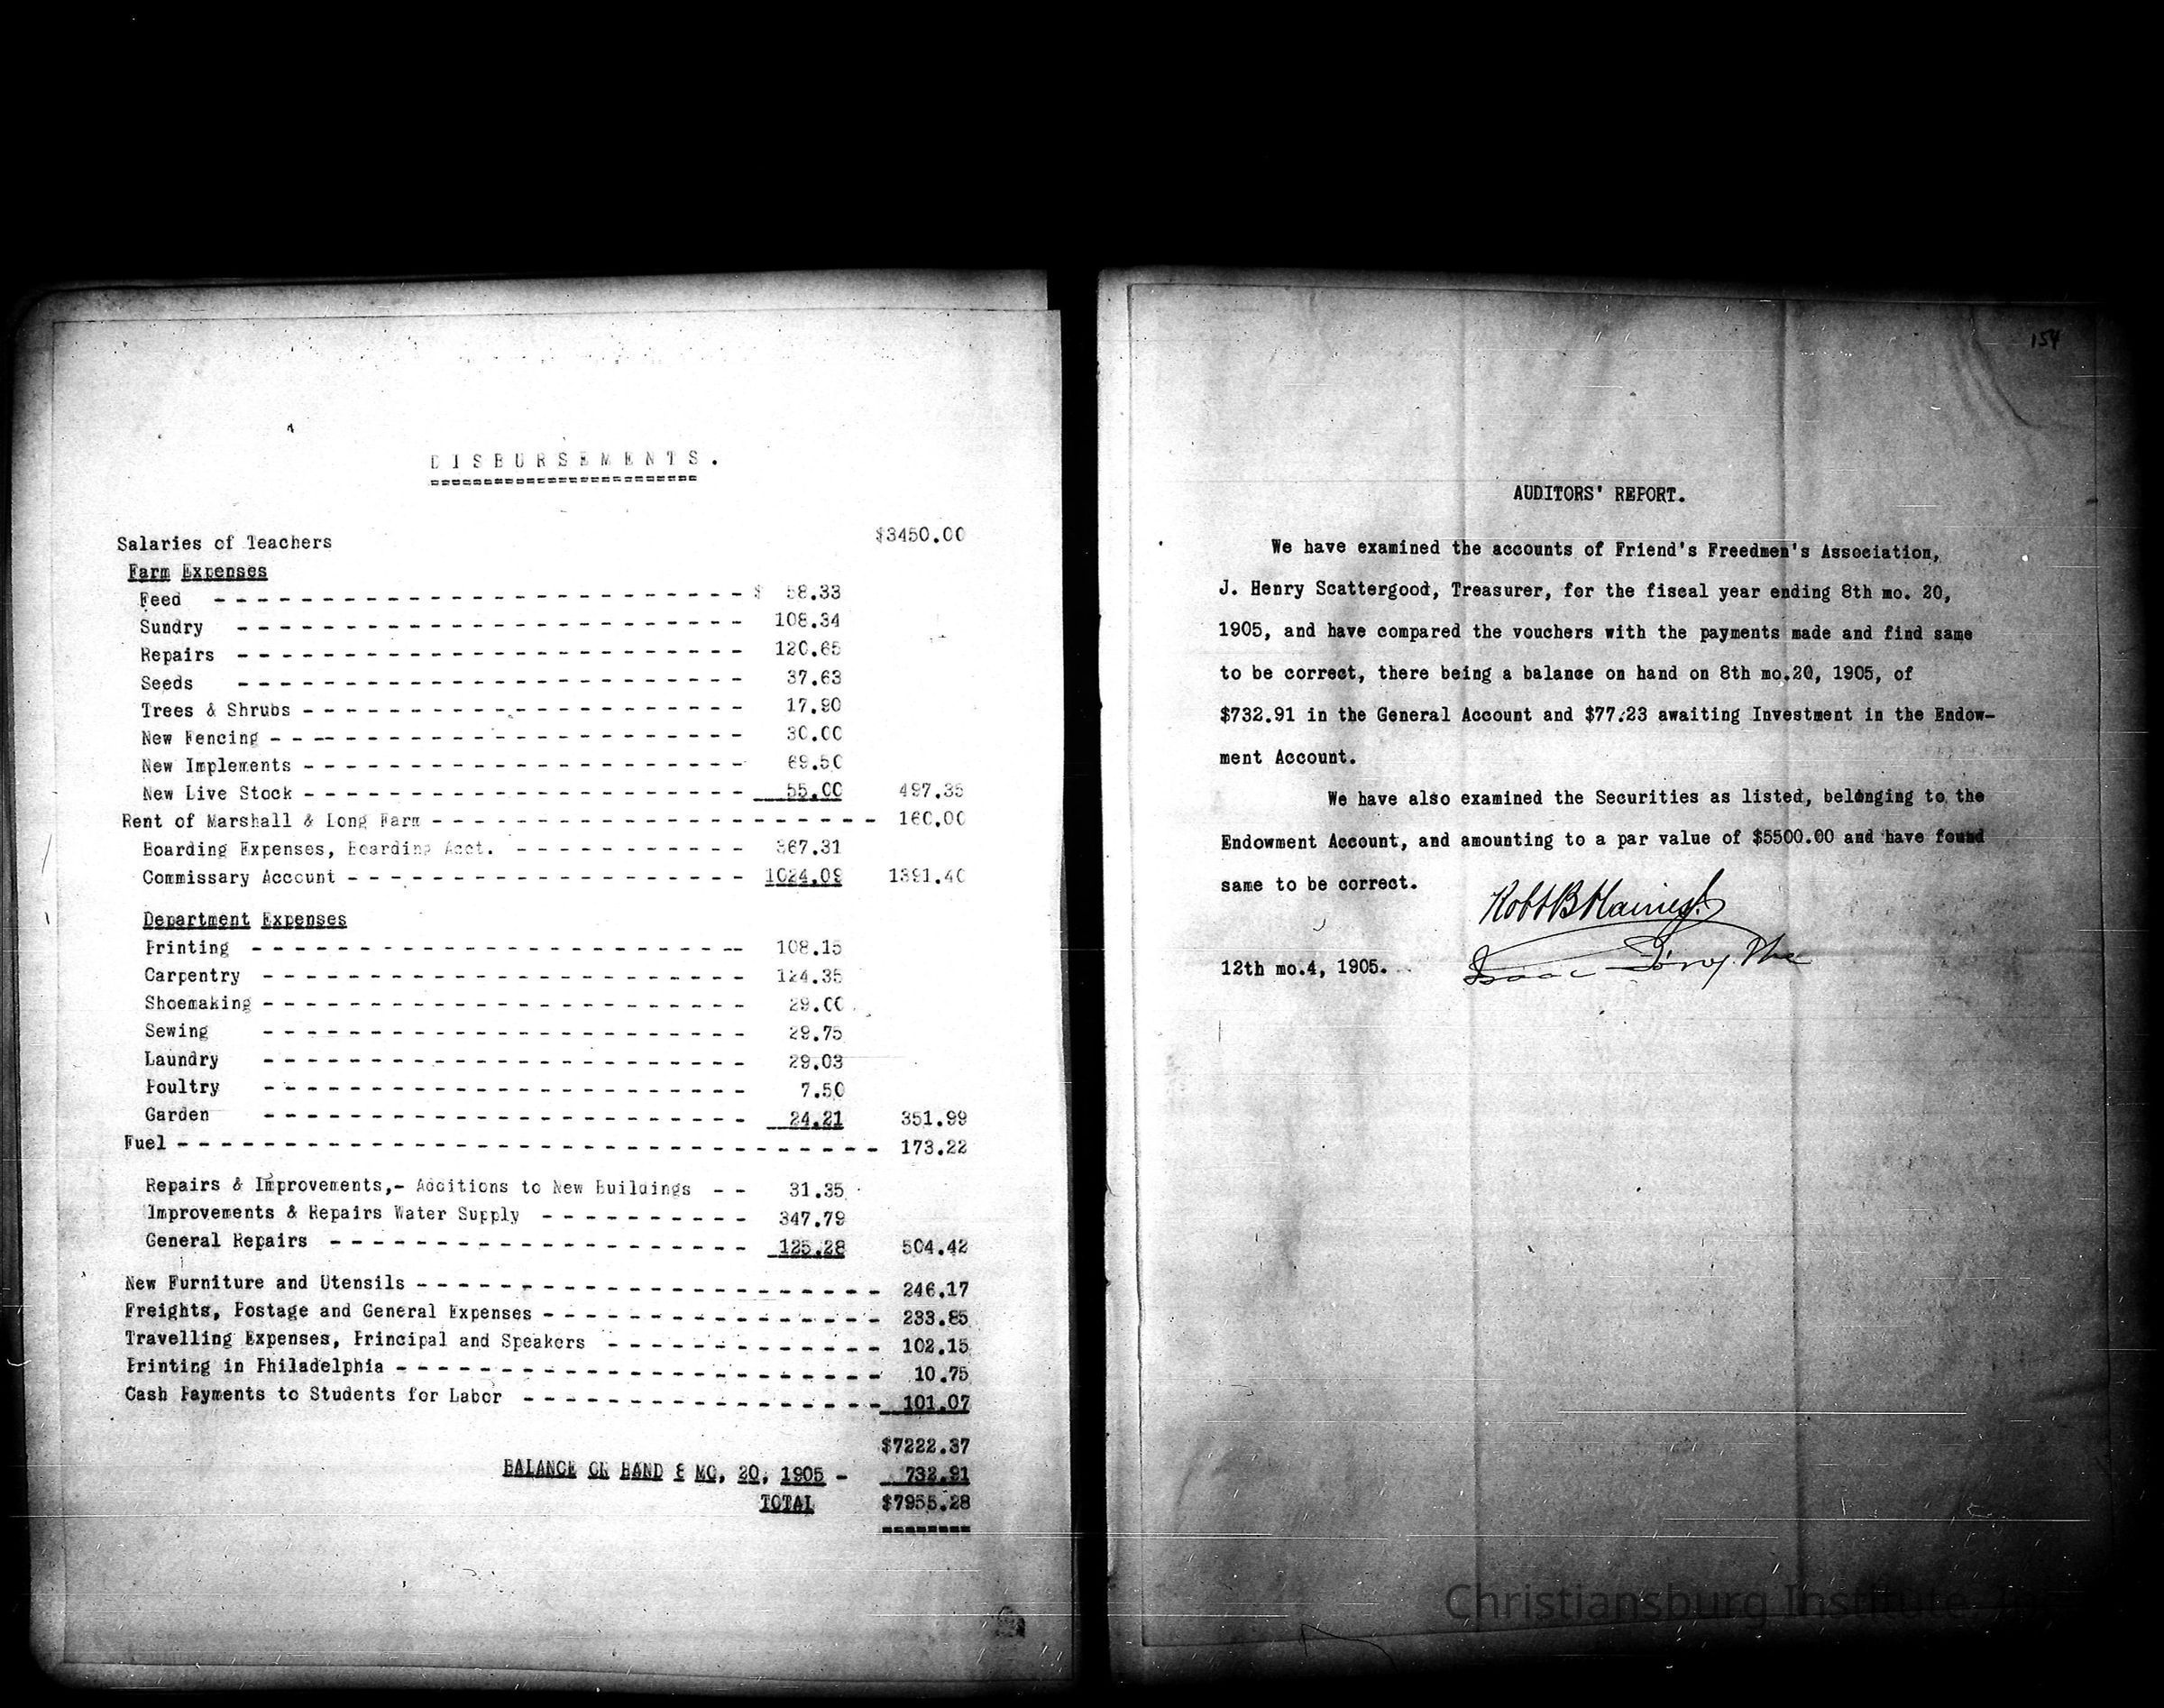 DISBURSEMENTS.
Salaries of Teachers $3450.00
Farm Expenses
Feed - - - - - - - - - - - - - - - - - - - - - - - - - $ 58.33
Sundry - - - - - - - - - - - - - - - - - - - - - - - - 108.34
Repairs - - - - - - - - - - - - - - - - - - - - - - - - 120.65
Seeds - - - - - - - - - - - - - - - - - - - - - - - - 37.63
Trees & Shrubs - - - - - - - - - - - - - - - - - - - - - 17.90
New Fencing - - - - - - - - - - - - - - - - - - - - - - 30.00
New Implements - - - - - - - - - - - - - - - - - - - - - 69.50
New Live Stock - - - - - - - - - - - - - - - - - - - - - 55.00 497.35
Rent of Marshall & Long Farm - - - - - - - - - - - - - - - - - - - - - 160.00
Boarding Expenses, Boarding Acct. - - - - - - - - - - - 367.31
Commissary Account - - - - - - - - - - - - - - - - - - - 1024.09 1391.40
Department Expenses
Printing - - - - - - - - - - - - - - - - - - - - - - - - 108.15
Carpentry - - - - - - - - - - - - - - - - - - - - - - - 124.35
Shoemaking - - - - - - - - - - - - - - - - - - - - - - - 29.00
Sewing - - - - - - - - - - - - - - - - - - - - - - - 29.75
Laundry - - - - - - - - - - - - - - - - - - - - - - - 29.03
Poultry - - - - - - - - - - - - - - - - - - - - - - - 7.50
Garden - - - - - - - - - - - - - - - - - - - - - - - 24.21 351.99
Fuel - - - - - - - - - - - - - - - - - - - - - - - - - - - - - - - - - 173.22
Repairs & Improvements,- Additions to New Buildings - - 31.35
Improvements & Repairs Water Supply - - - - - - - - - - 347.79
General Repairs - - - - - - - - - - - - - - - - - - - - 125.28 504.42
New Furniture and Utensils - - - - - - - - - - - - - - - - - - - - - - 246.17
Freights, Postage and General Expenses - - - - - - - - - - - - - - - - 233.85
Travelling Expenses, Principal and Speakers - - - - - - - - - - - - - 102.15
Printing in Philadelphia - - - - - - - - - - - - - - - - - - - - - - - 10.75
Cash Payments to Students for Labor - - - - - - - - - - - - - - - - - 101.07
$7222.37
BALANCE ON HAND 8 MO, 20, 1905 - 732.91
TOTAL $7955.28
154
AUDITORS' REPORT.
We have examined the accounts of Friend's Freedmen's Association,
J. Henry Scattergood, Treasurer, for the fiscal year ending 8th mo. 20,
1905, and have compared the vouchers with the payments made and find same
to be correct, there being a balance on hand on 8th mo.20, 1905, of
$732.91 in the General Account and $77.23 awaiting Investment in the Endow-
ment Account.
We have also examined the Securities as listed, belonging to the
Endowment Account, and amounting to a par value of $5500.00 and have found
same to be correct.
Robt B Haines Jr
12th mo.4, 1905. Isaac Forsythe
Christiansburg Institute